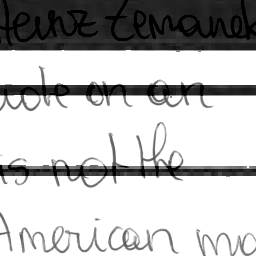 Heinz Zemanek
on an
is not the
American